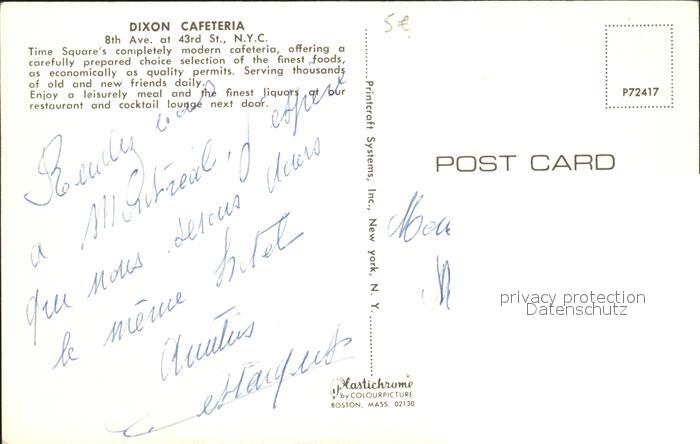 DIXON CAFETERIA
8th Ave. at 43rd St., N.Y.C.
Time Square's completely modern cafeteria, offering a
carefully prepared choice selection of the finest foods,
as economically as quality permits. Serving thousands
of old and new friends daily.
Enjoy a leisurely meal and the finest liquors at our
restaurant and cocktail lounge next door.
Rendez vous
a Montréal, j'espère
que nous serons dans
le même hotel
Amitiés
5€
Printcraft Systems, Inc., New york, N. Y.
Plastichrome®
by COLOURPICTURE
BOSTON, MASS. 02130
P72417
POST CARD
privacy protection
Datenschutz